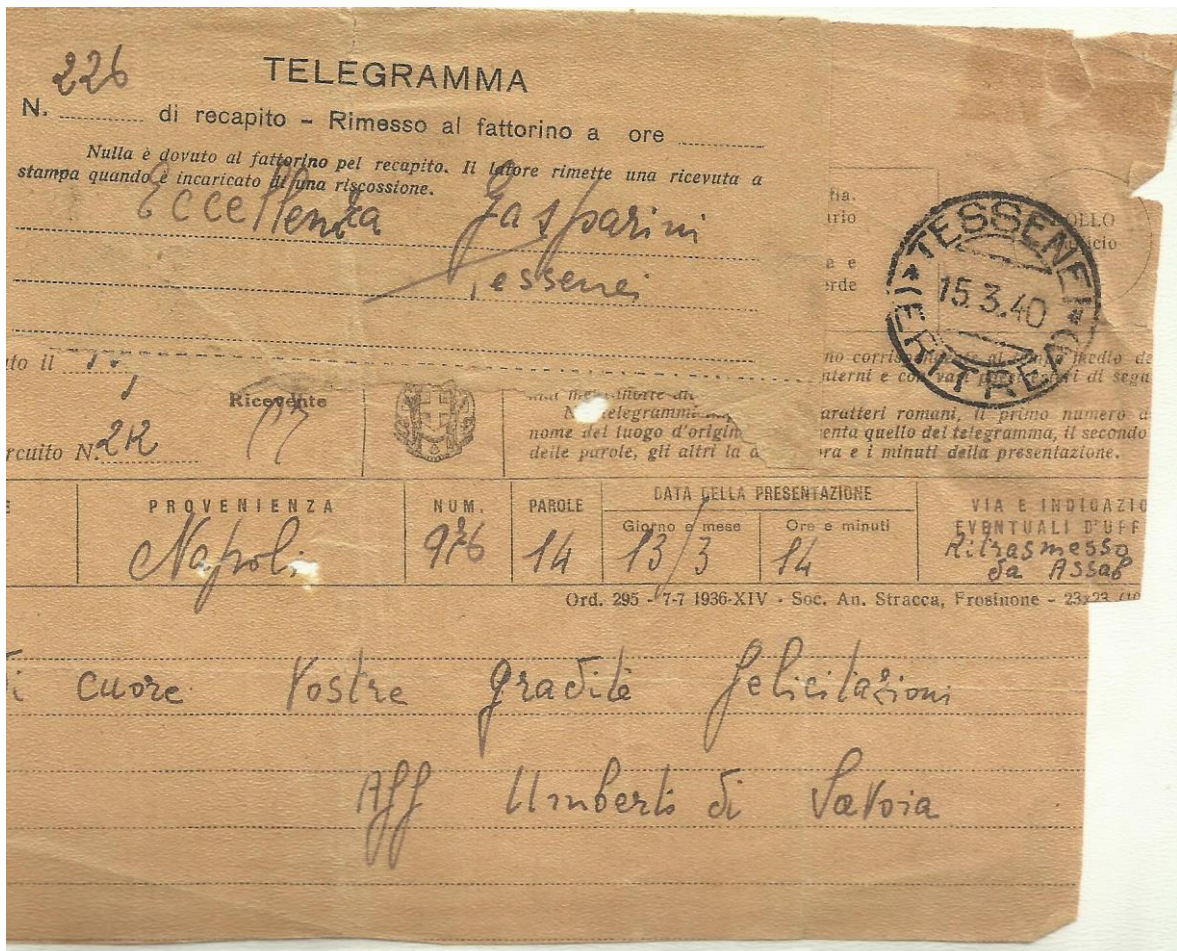 226
TELEGRAMMA
N. di recapito - Rimesso al fattorino a ore
Nulla è dovuto al fattorino pel recapito. Il latore rimette una ricevuta a
stampa quando è incaricato di una riscossione.
Eccellenza Gasparini
Tessenei
fia.
ario
e e
erde
OLLO
TESSENEI
15.3.40
(ERITREA)
to il
no corrispondente al tempo medio de
nterni e con vari
di segu
Ricevente
N telegrammi
caratteri romani, il primo numero d
rcuito N. 212
nome del luogo d'origin
enta quello del telegramma, il secondo
delle parole, gli altri la d
ora e i minuti della presentazione.
E
PROVENIENZA
NUM.
PAROLE
DATA DELLA PRESENTAZIONE
Giorno e mese
Ore e minuti
VIA E INDICAZIO
EVENTUALI D'UFF
Napoli
976
14
13/3
14
Ritrasmesso
da Assab
Ord. 295 - 7-7 1936-XIV - Soc. An. Stracca, Frosinone - 23x23
di cuore Vostre gradite felicitazioni
Aff Umberto di Savoia